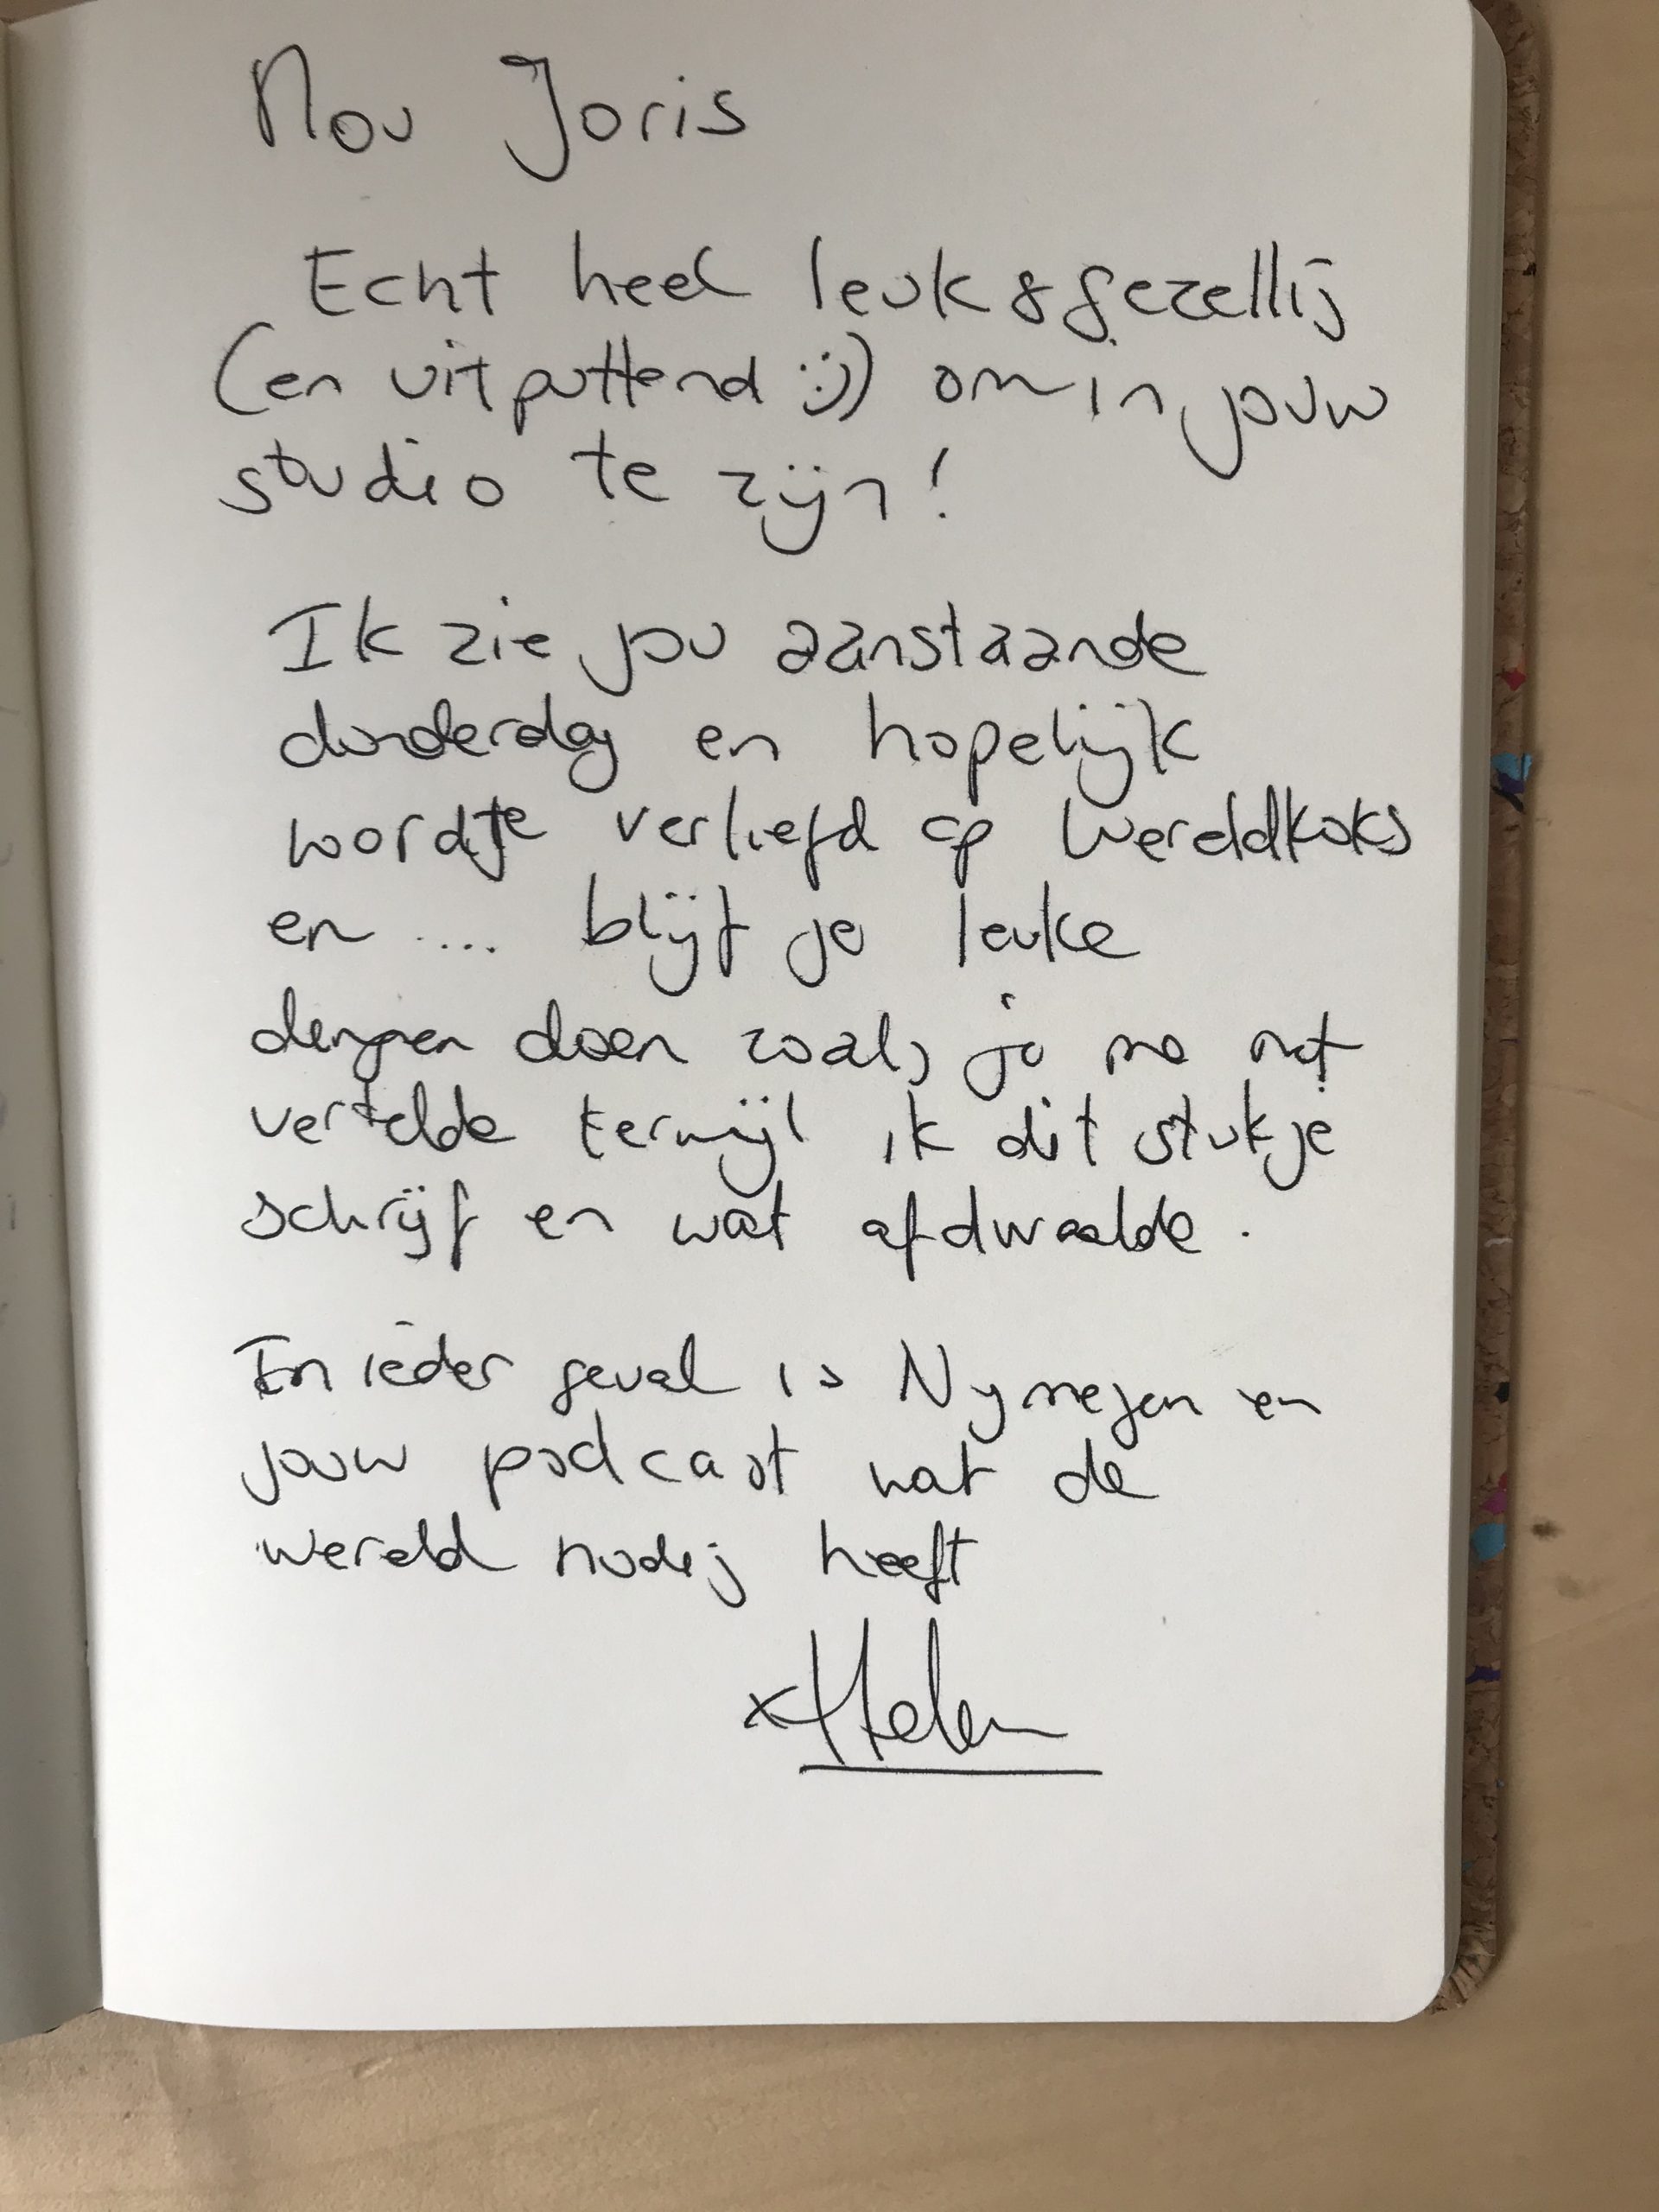 Nou Joris
Echt heel leuk & gezellig
(en uitputtend :)) om in jouw
studio te zijn!
Ik zie jou aanstaande
donderdag en hopelijk
wordt je verliefd op Wereldkoks
en .... blijf je leuke
dingen doen zoals je me net
vertelde terwijl ik dit stukje
schrijf en wat afdwaalde.
In ieder geval is Nymegen en
jouw podcast wat de
wereld nodig heeft
x Helen